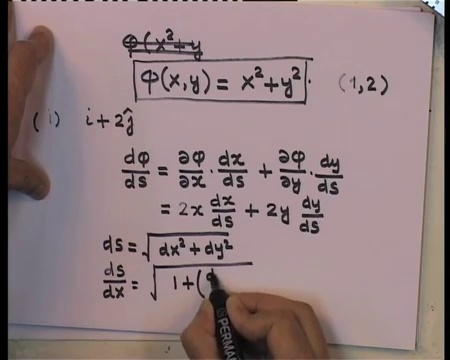 φ(x²+y
φ(x,y) = x²+y². (1,2)
(i) i+2ĵ
dφ/ds = ∂φ/∂x · dx/ds + ∂φ/∂y · dy/ds
= 2x dx/ds + 2y dy/ds
ds = √(dx²+dy²)
ds/dx = √(1+(
PERMA